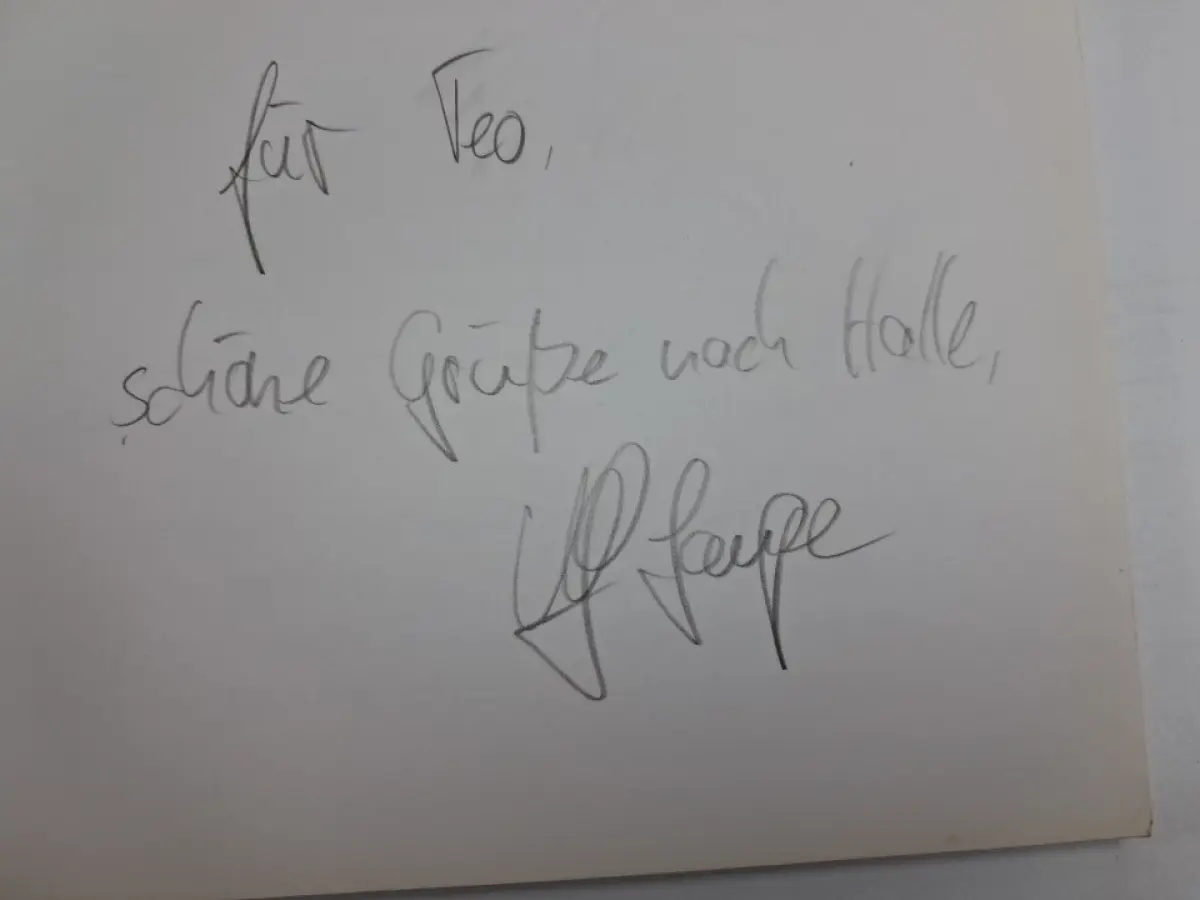 für Teo,
schöne Grüße nach Halle,